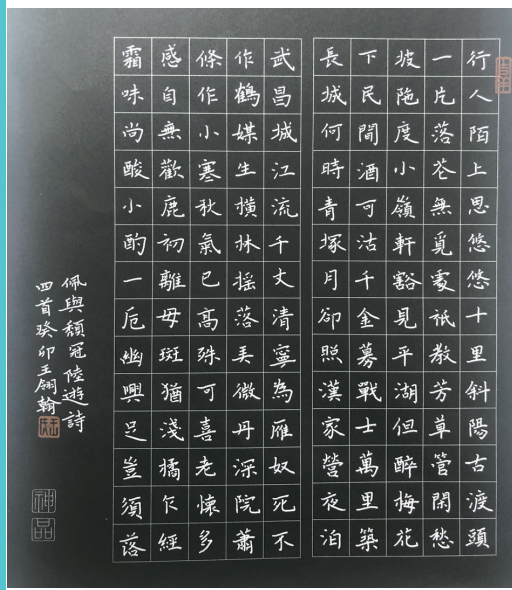 行人陌上思悠悠十里斜陽古渡頭
一片落花無覓處祇教芳草管閑愁
坡陁度小嶺軒豁見平湖但醉梅花
下民間酒可沽千金募戰士萬里築
長城何時青塚月卻照漢家營夜泊
武昌城江流千丈清寧為雁奴死不
作鶴媒生橫林搖落美微丹深院蕭
條作小寒秋氣已高殊可喜老懷多
感自無歡鹿初離毋斑猶淺橘乍經
霜味尚酸小酌一卮幽興足豈須落
佩與頹冠陸遊詩
四首癸卯王翎翰
神品